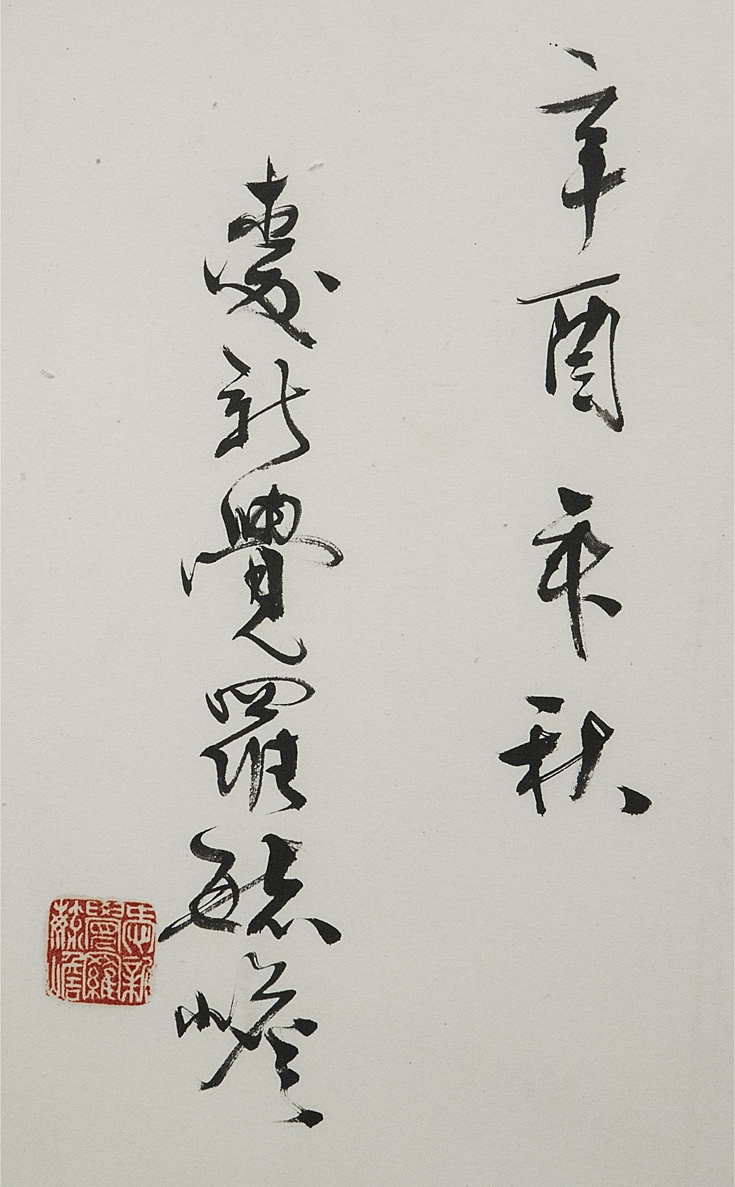 辛酉年秋
愛新覺羅毓嶦
愛新覺羅毓嶦